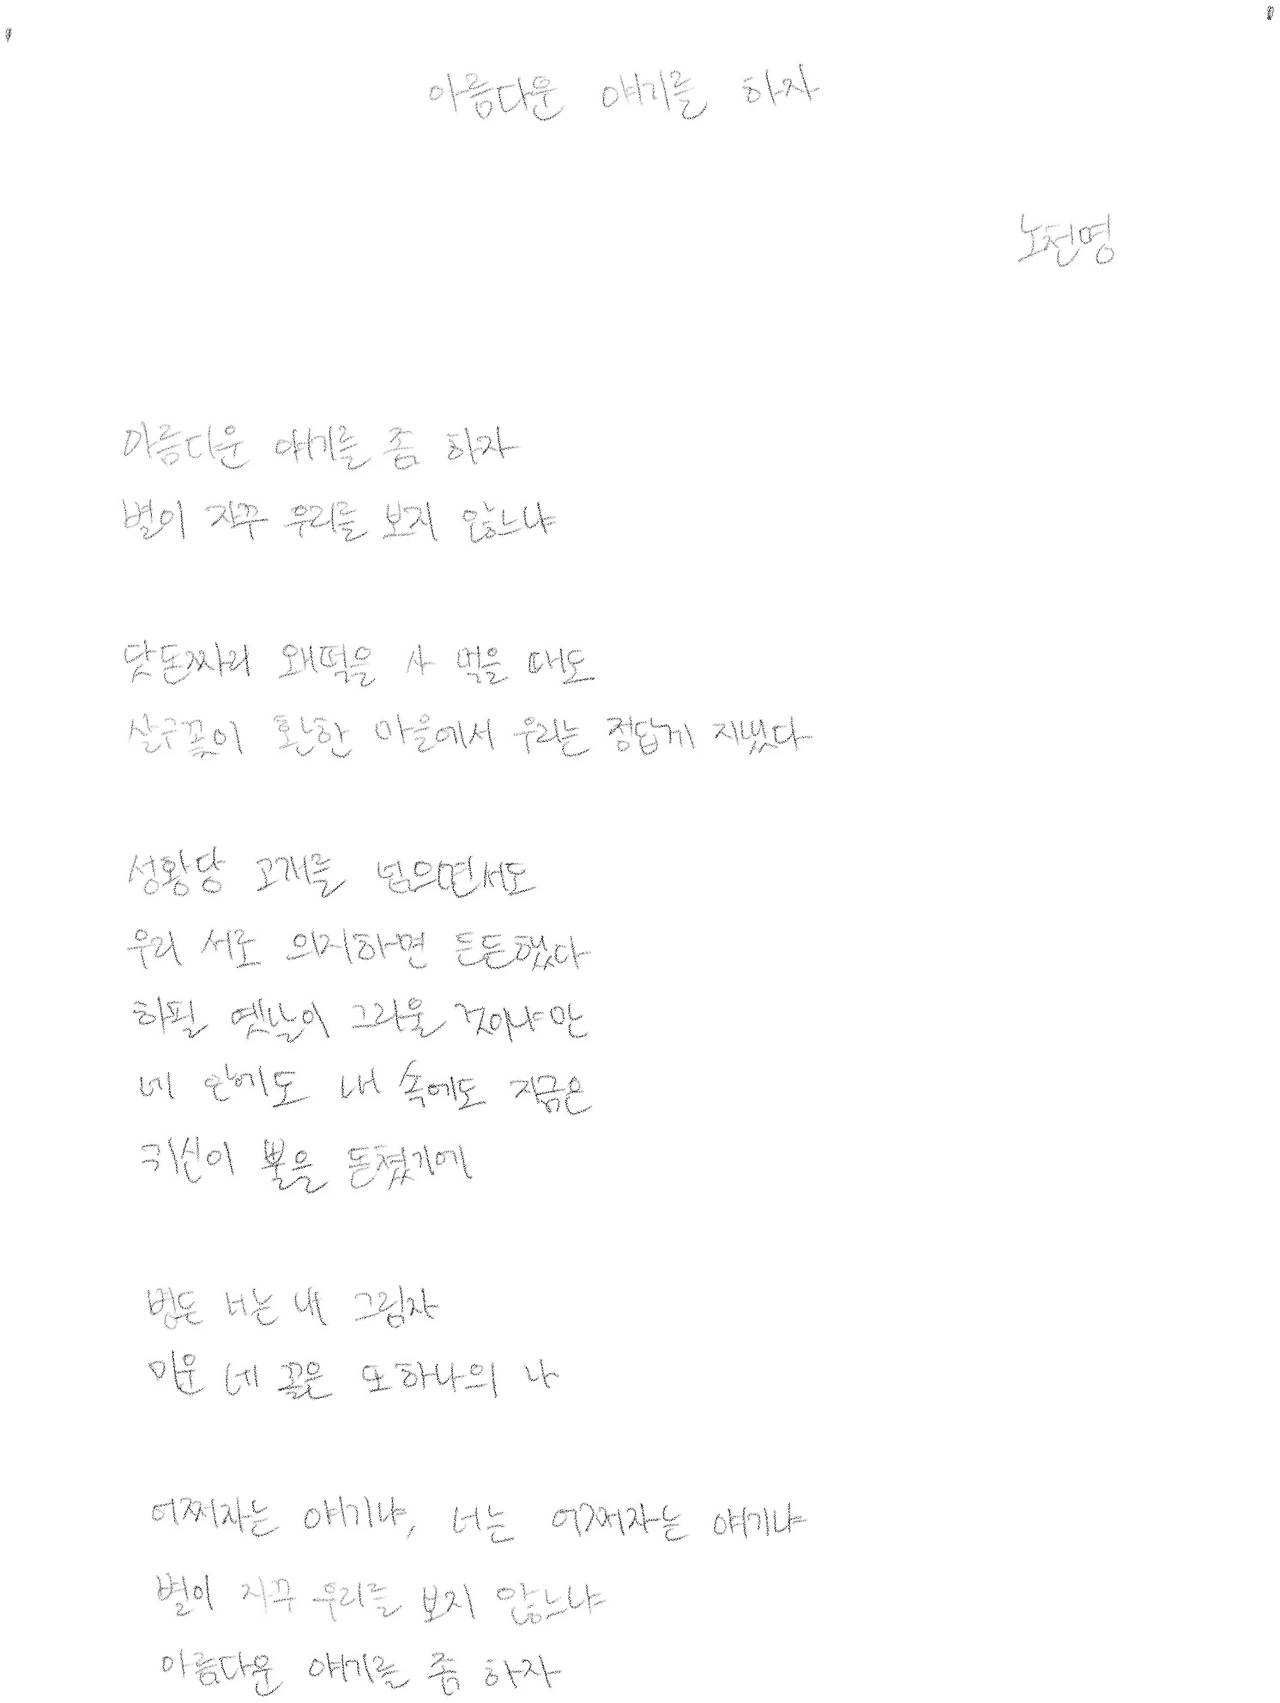 아름다운 얘기를 하자
노천명
아름다운 얘기를 좀 하자
별이 자꾸 우리를 보지 않느냐
닷돈짜리 왜떡을 사 먹을 때도
살구꽃이 환한 마을에서 우리는 정답게 지냈다
성황당 고개를 넘으면서도
우리 서로 의지하면 든든했다
하필 옛날이 그리울 것이냐만
네 안에도 내 속에도 지금은
귀신이 뿔을 돋쳤기에
병든 너는 내 그림자
미운 네 꼴은 또 하나의 나
어쩌자는 얘기냐, 너는 어쩌자는 얘기냐
별이 자꾸 우리를 보지 않느냐
아름다운 얘기를 좀 하자